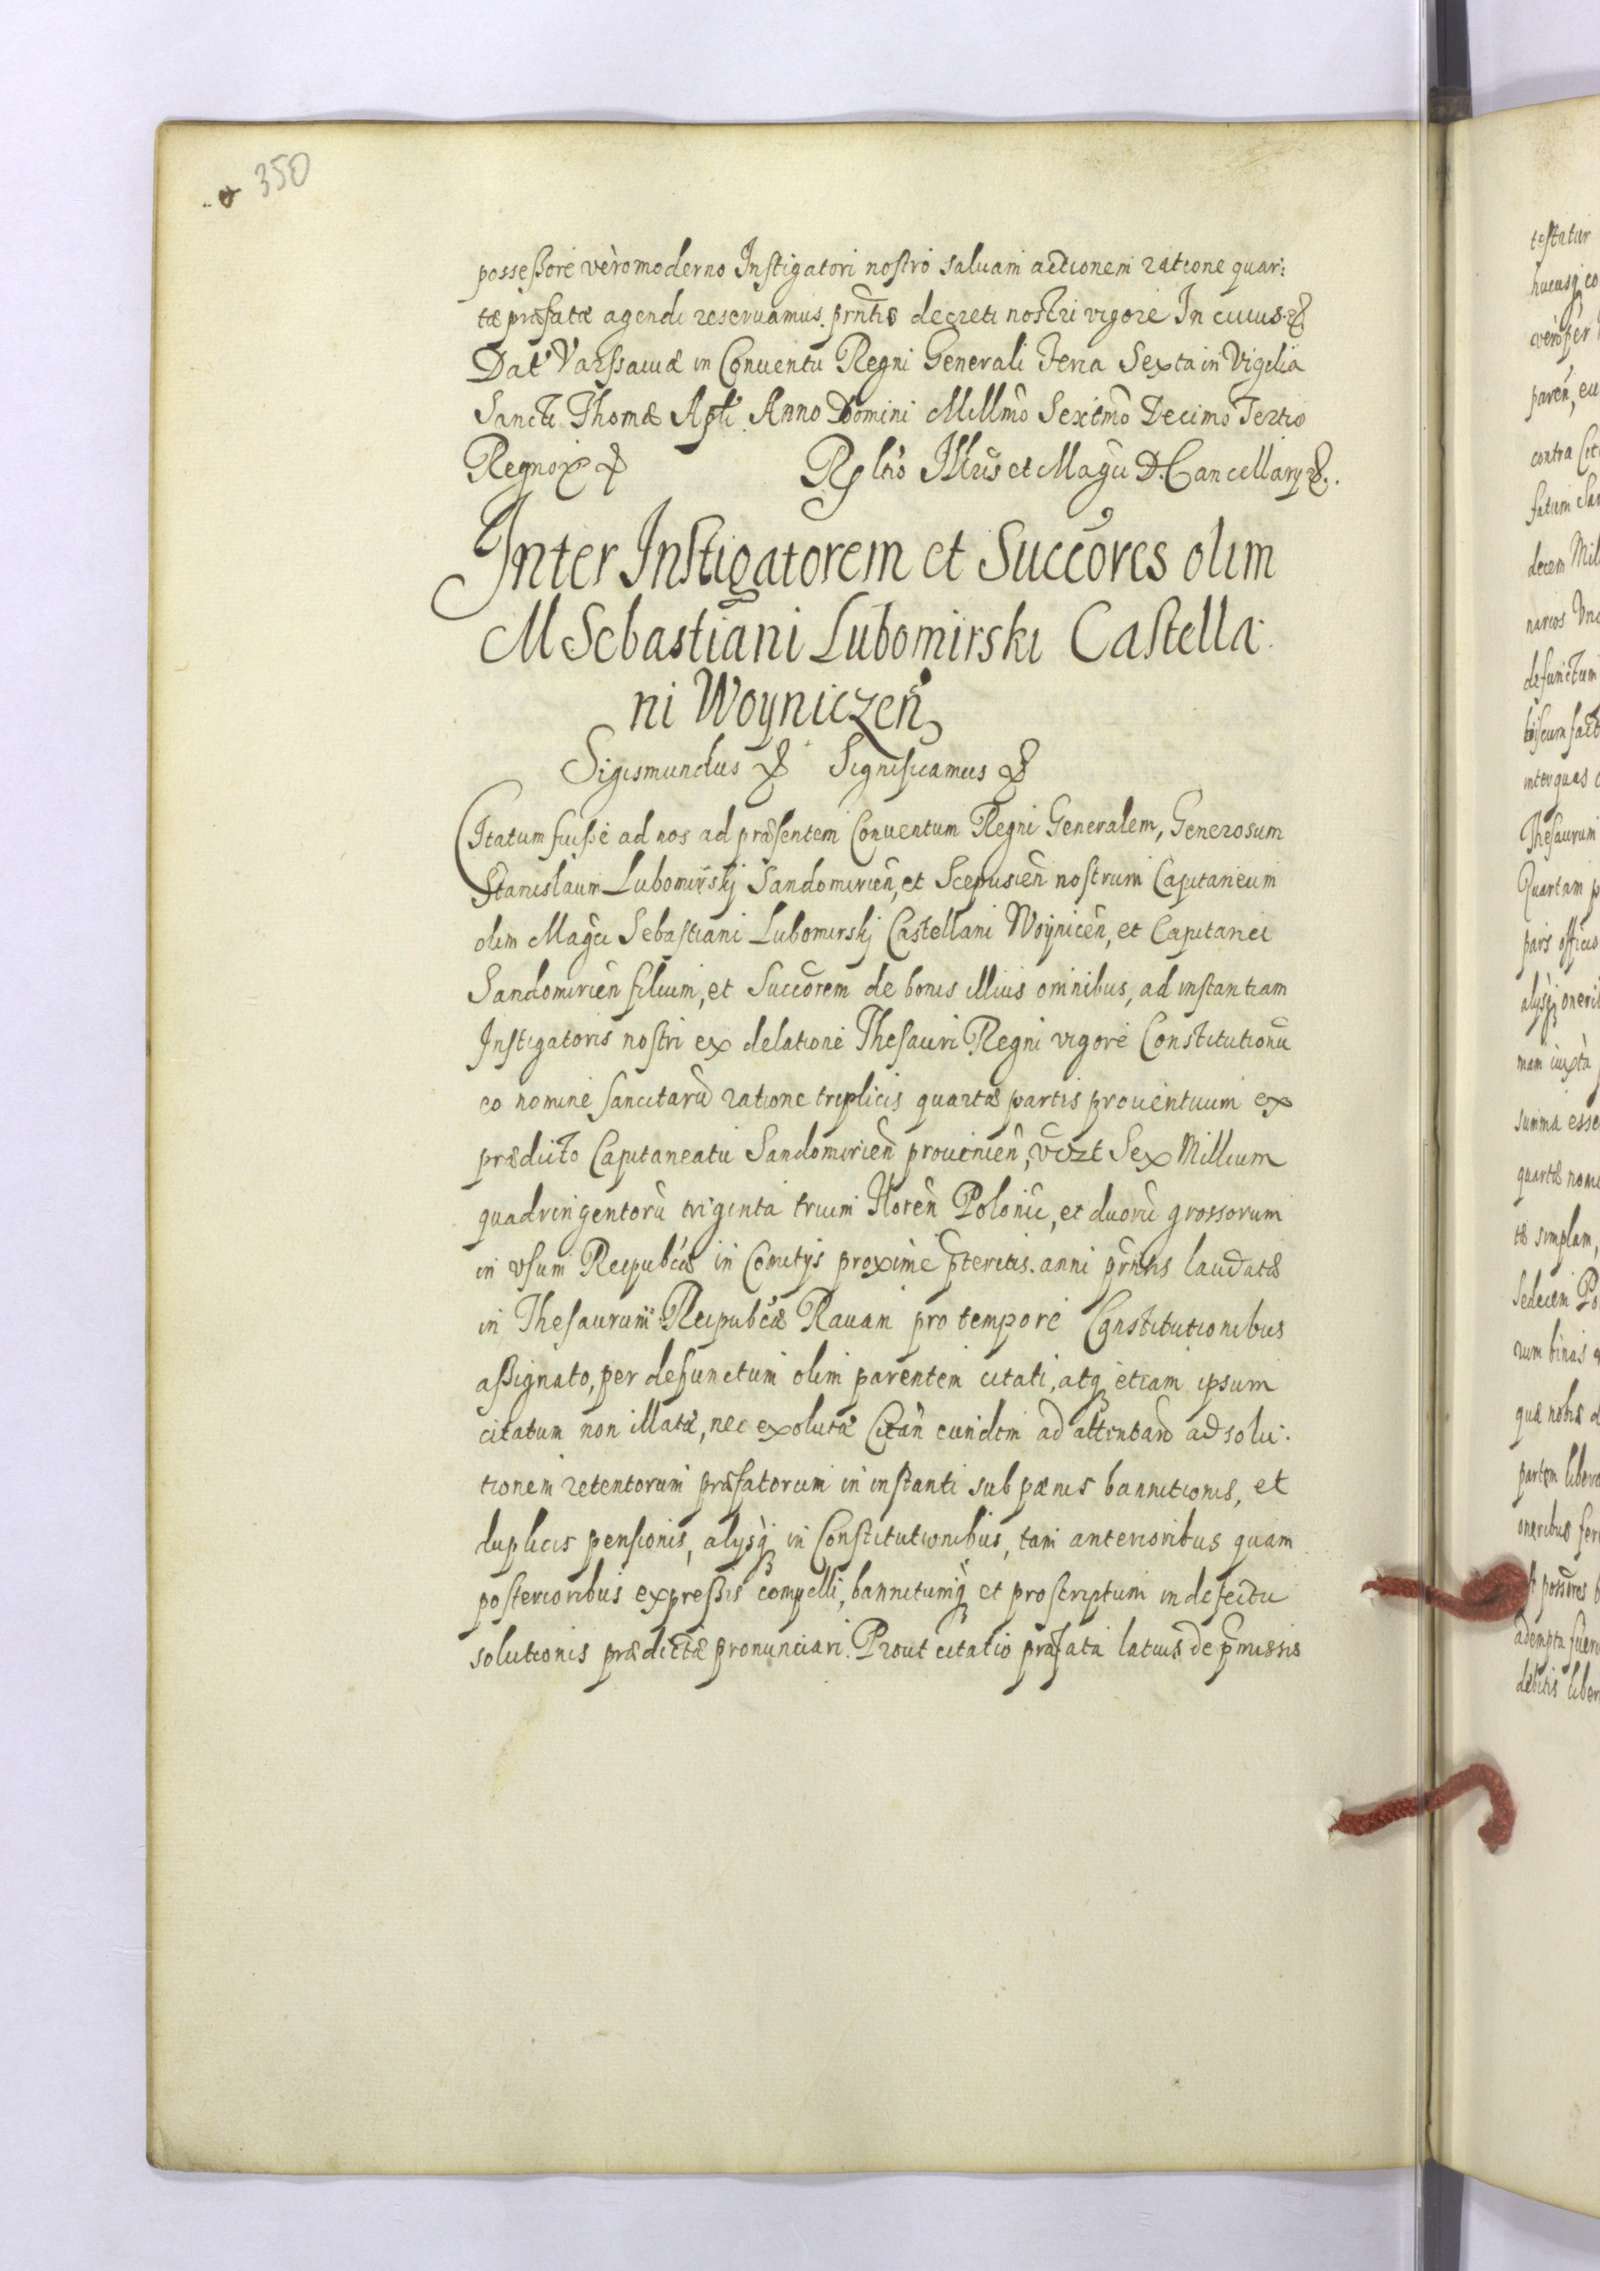 350
possessore vero moderno Instigatori nostro saluam actionem ratione quar:
tæ præfatæ agendi reseruamus. prñtis decreti nostri vigore In cuius &
Dat Varssauiæ in Conuentu Regni Generali Feria Sexta in Vigilia
Sancti Thomæ Apli. Anno Domini Millmo Sexctmo Decimo Tertio
Regnoꝝ & Rltio Illris et Magci D. Cancellarij &.
Inter Instigatorem et Succores olim
M Sebastiani Lubomirski Castella:
ni Woyniczeñ
Sigismundus & Significamus &
Citatum fuisse ad nos ad præsentem Conuentum Regni Generalem, Generosum
Stanislaum Lubomirskj Sandomirieñ, et Scepusieñ nostrum Capitaneum
olim Magci Sebastiani Lubomirskj Castellani Woyniceñ, et Capitanei
Sandomirieñ filium, et Succorem de bonis illius omnibus, ad instantiam
Instigatoris nostri ex delatione Thesauri Regni vigore Constitutionũ
eo nomine sancitarũ ratione triplicis quartæ partis prouentuum ex
prædicto Capitaneatu Sandomirieñ prouenieñ, vizt Sex Millium
quadringentorũ triginta trium Floreñ Polonic, et duorũ grossorum
in vsum Reipubcæ in Comitijs proxime pteritis. anni prñtis laudatæ
in Thesaurum Reipubcæ Rauam pro tempore Constitutionibus
assignato, per defunctum olim parentem citati, atq etiam ipsum
citatum non illatæ, nec exolutæ Citañ eundem ad attentand ad solu:
tionem retentorum præfatorum in instanti sub pænis bannitionis, et
duplicis pensionis, alijsq in Constitutionibus, tam anterioribus quam
posterioribus expressis compelli, bannitumq et proscriptum in defectu
solutionis prædictæ pronunciari. Prout citatio præfata latius de pmissis